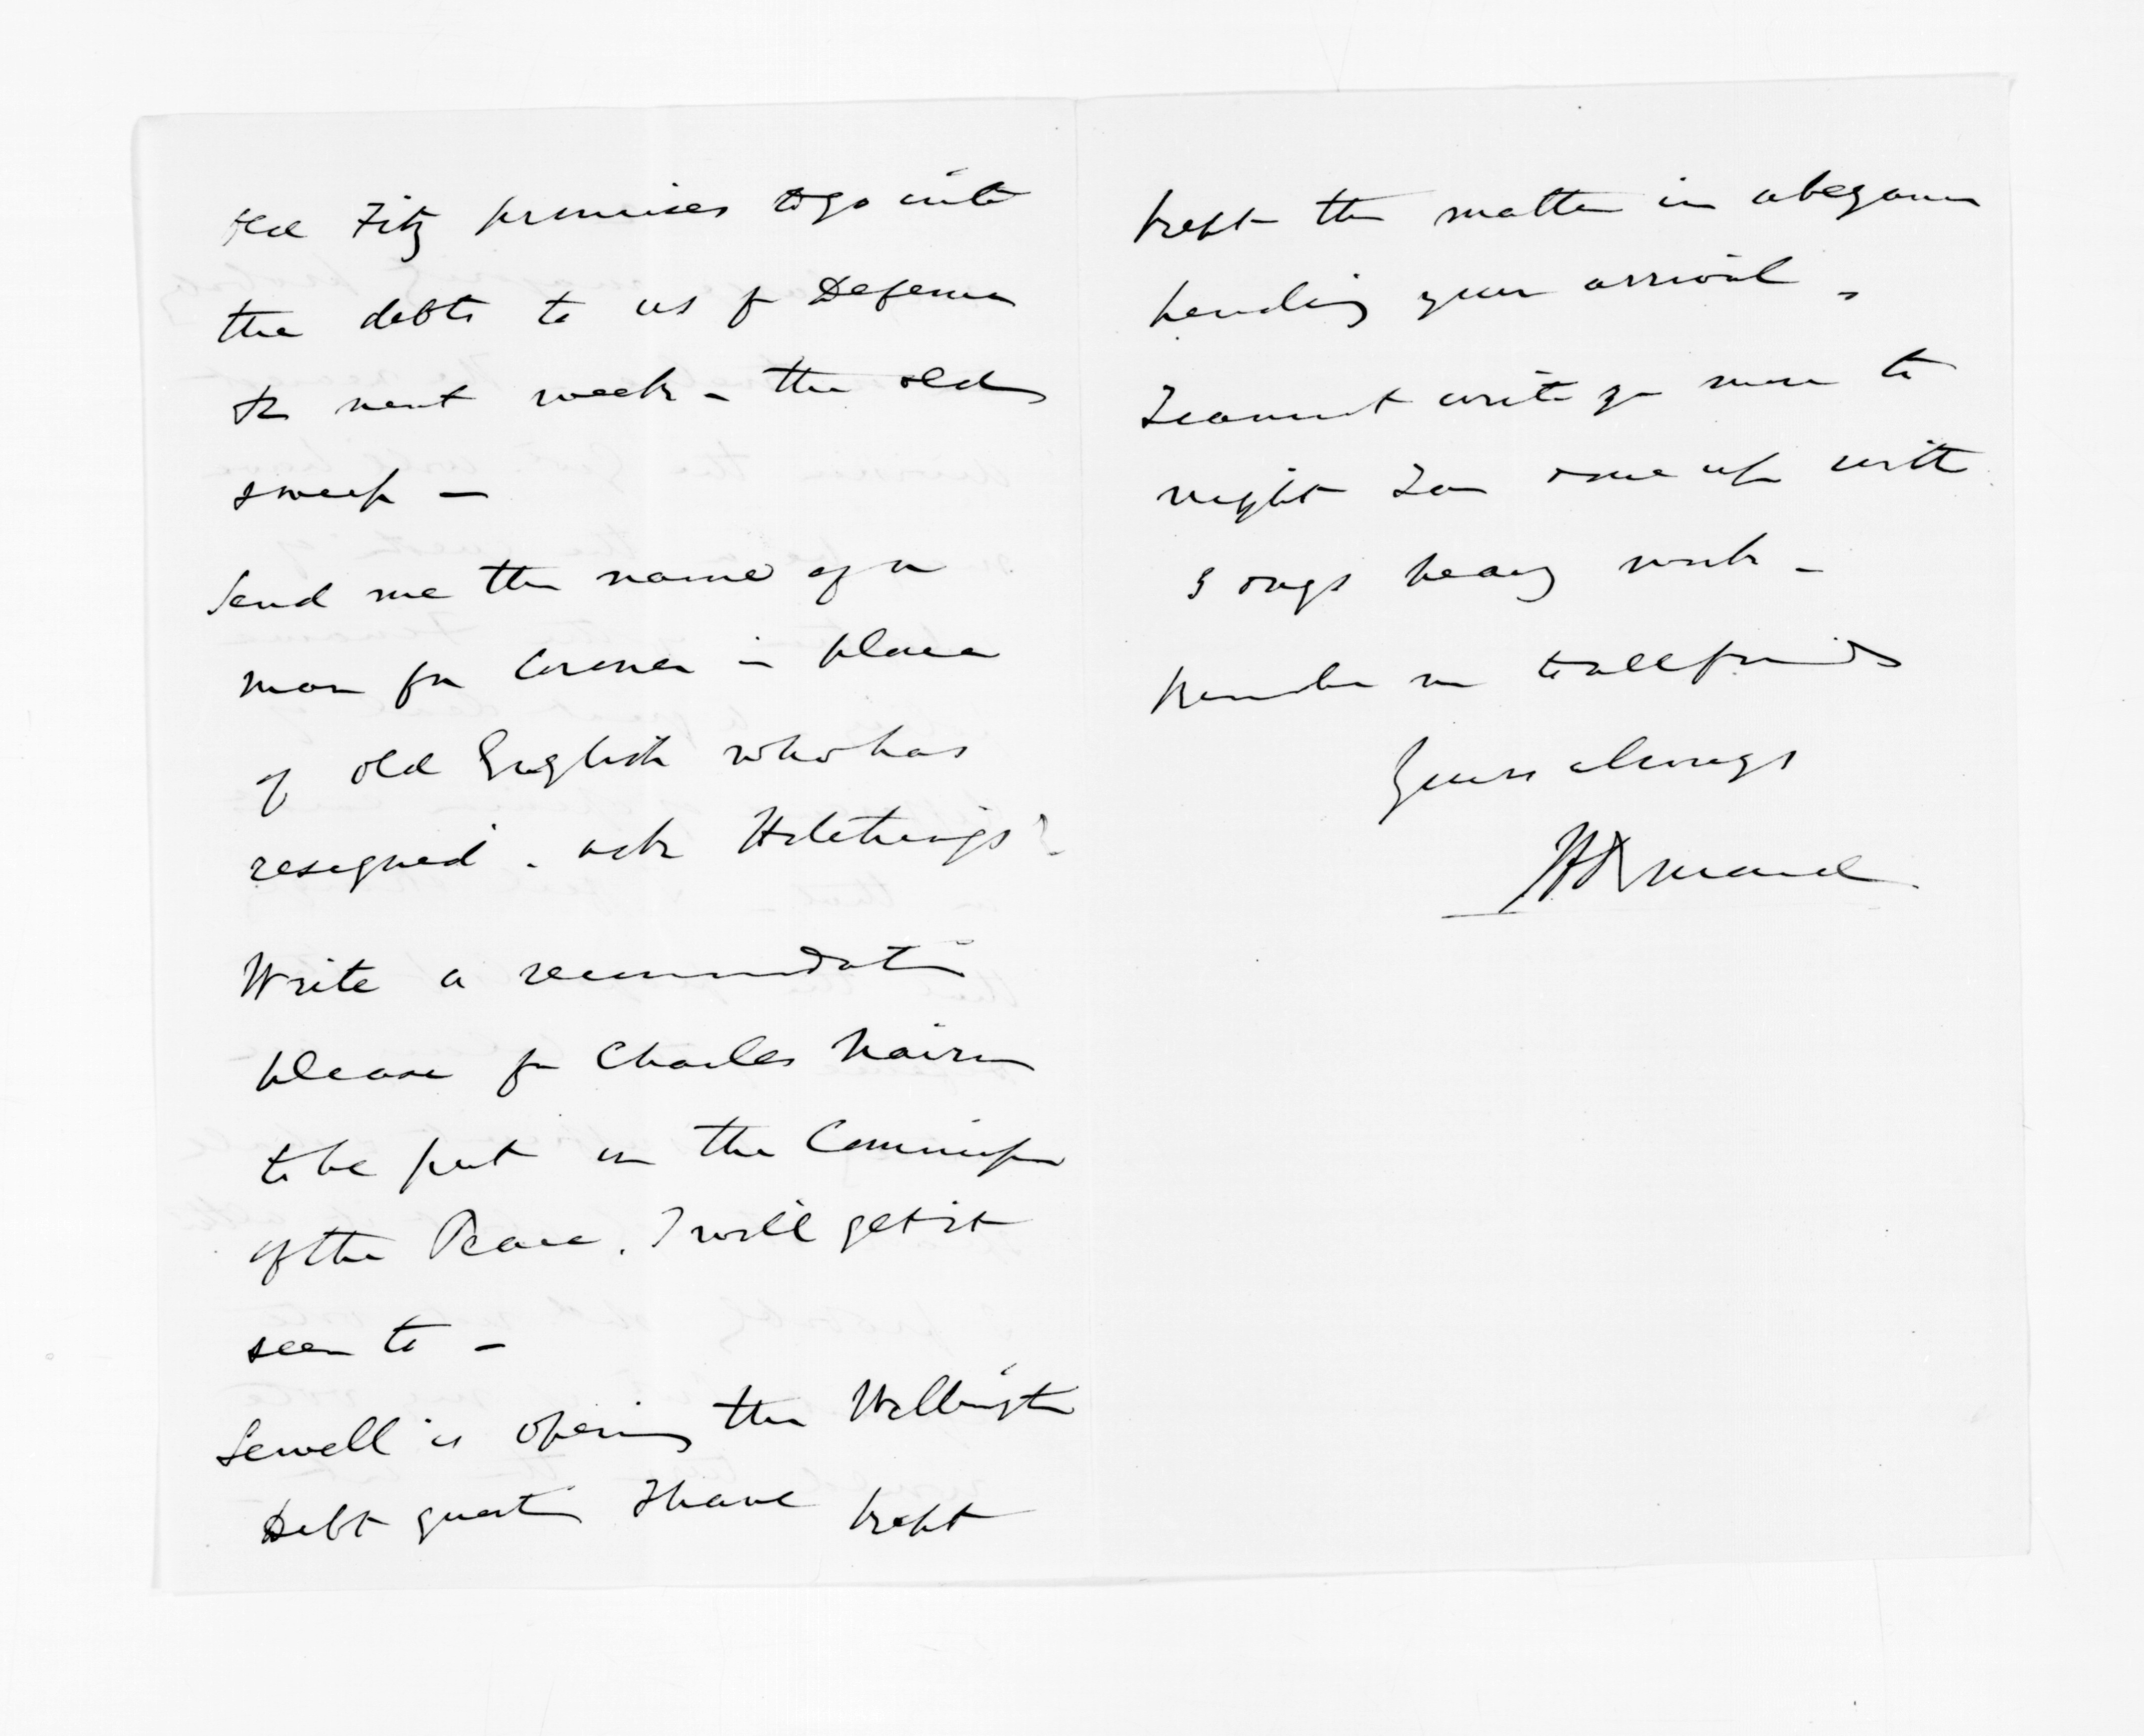 Old Fitz promises to go into
the debts to us for Defence
&c next week - the old
sweep -
Send me the name of a
man for Coroner in place
of old English who has
resigned. ask Hitchings?
Write a recommendation
please for Charles Nairn
to be put in the Commission
of the Peace. I will get it
seen to -
Sewell is opening the Wellington
Debt question I have kept
kept the matter in abeyance
pending your arrival -
I cannot write you more to
night I am done up with
3 days heavy work -
Remember me to all friends
Yours always
JDOrmond